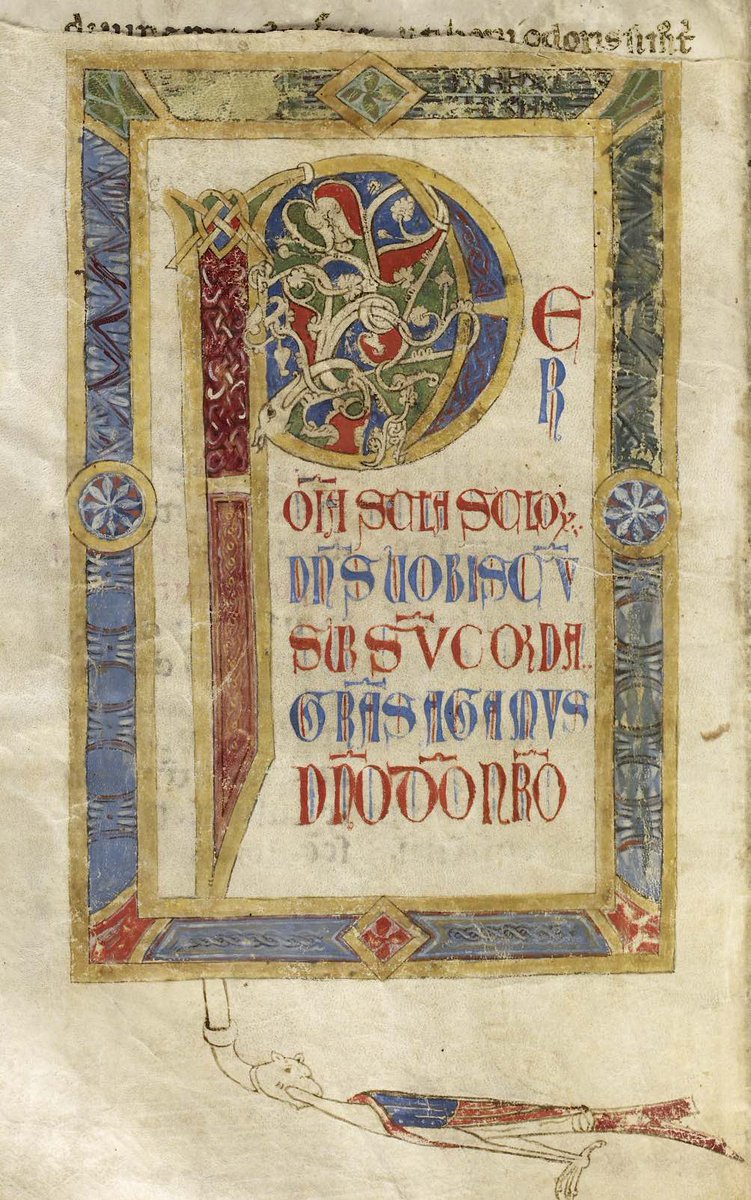 odoris sint
P
ER
OMIA SCLA SCLOR
DNS UOBISCU
SURSU CORDA
GRAS AGAMUS
DNO DO NRO